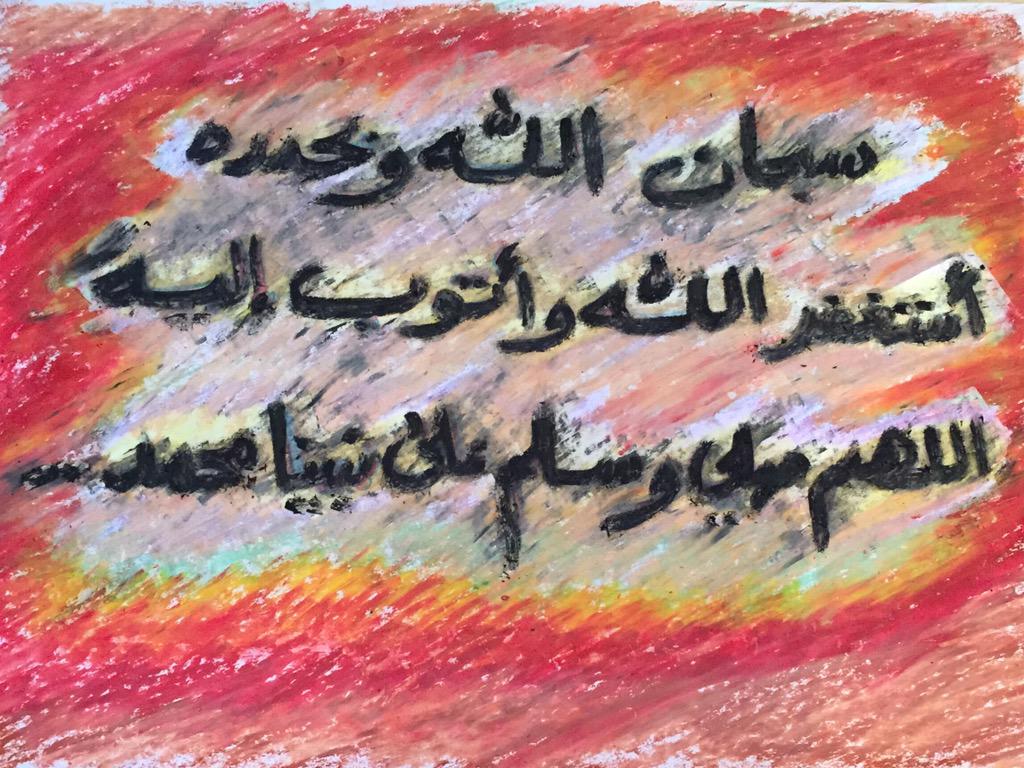 سبحان الله وبحمده
أستغفر الله وأتوب إليه
اللهم صلي وسلم على نبينا محمد